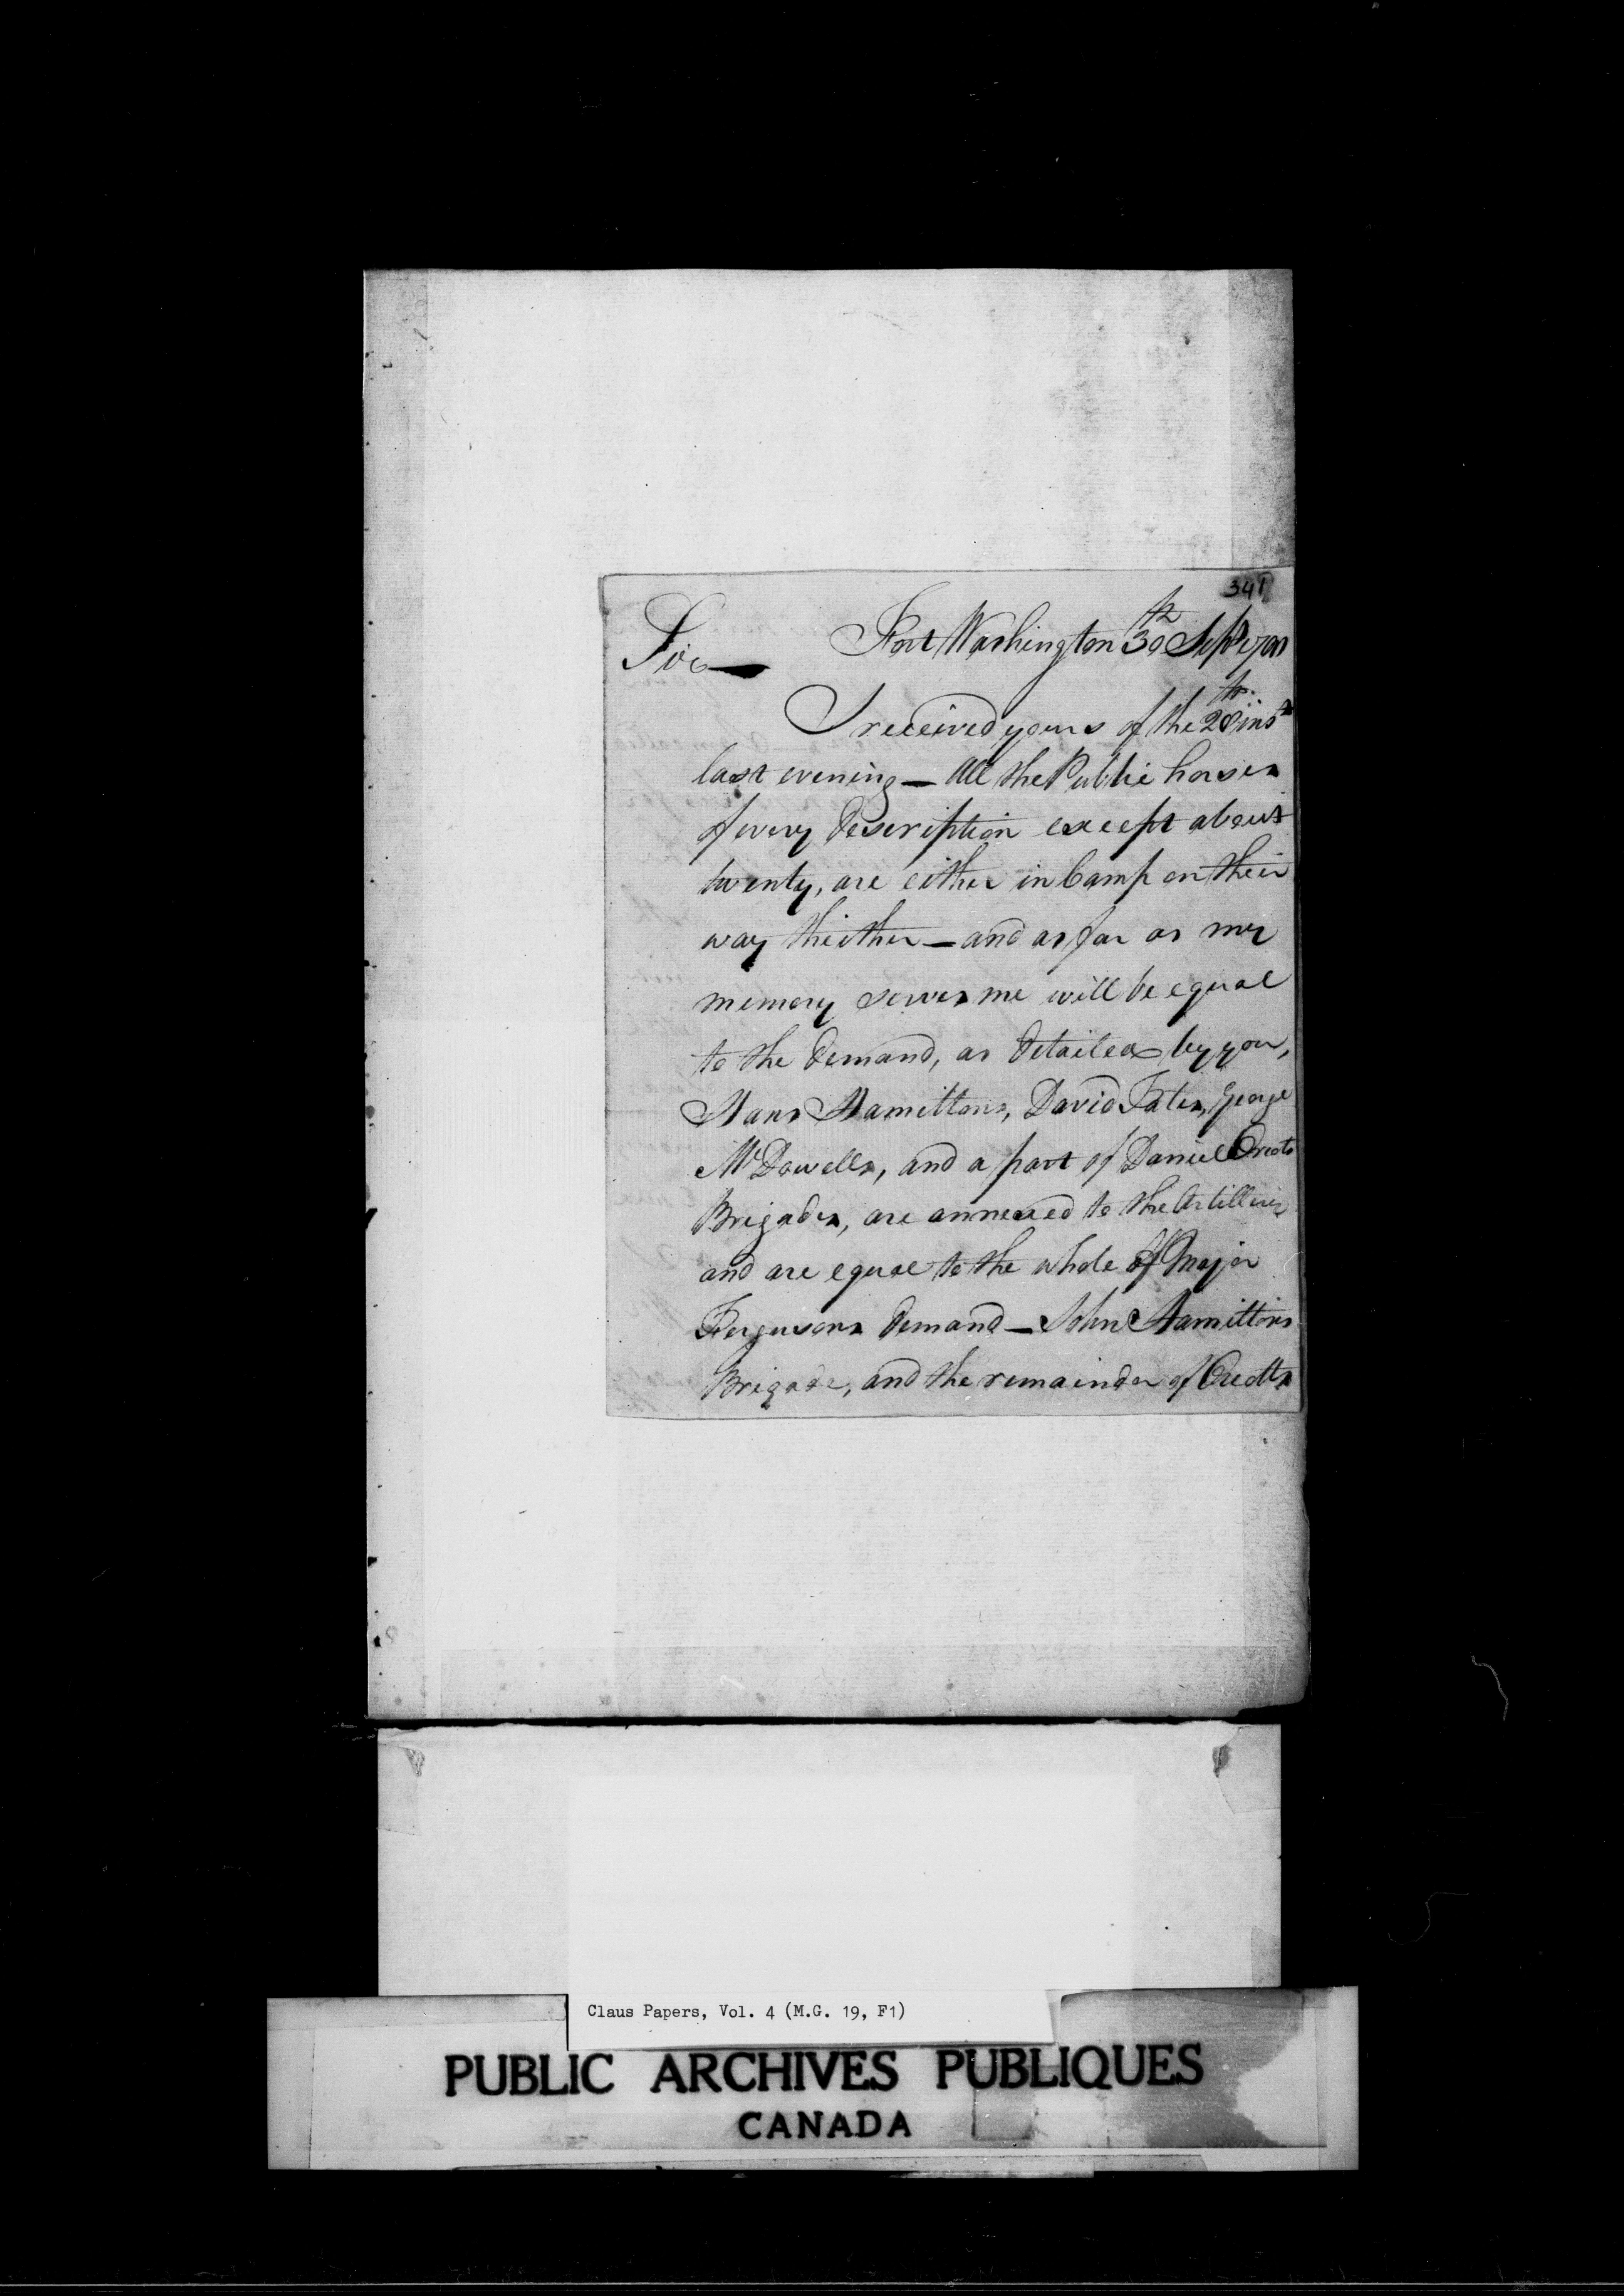 341
Sir — Fort Washington 30th Sept 1791
I received yours of the 28th inst
last evening — All the Public horses
of every description except about
twenty, are either in Camp on their
way thither — and as far as my
memory serves me will be equal
to the demand, as detailed by you,
Hans Hamiltons, David Fates, George
McDowells, and a part of Daniel
Brigades, are annexed to the Artillery
and are equal to the whole of Major
Fergusons demand — John Hamiltons
Brigade, and the remainder of
Claus Papers, Vol. 4 (M.G. 19, F1)
PUBLIC ARCHIVES PUBLIQUES
CANADA